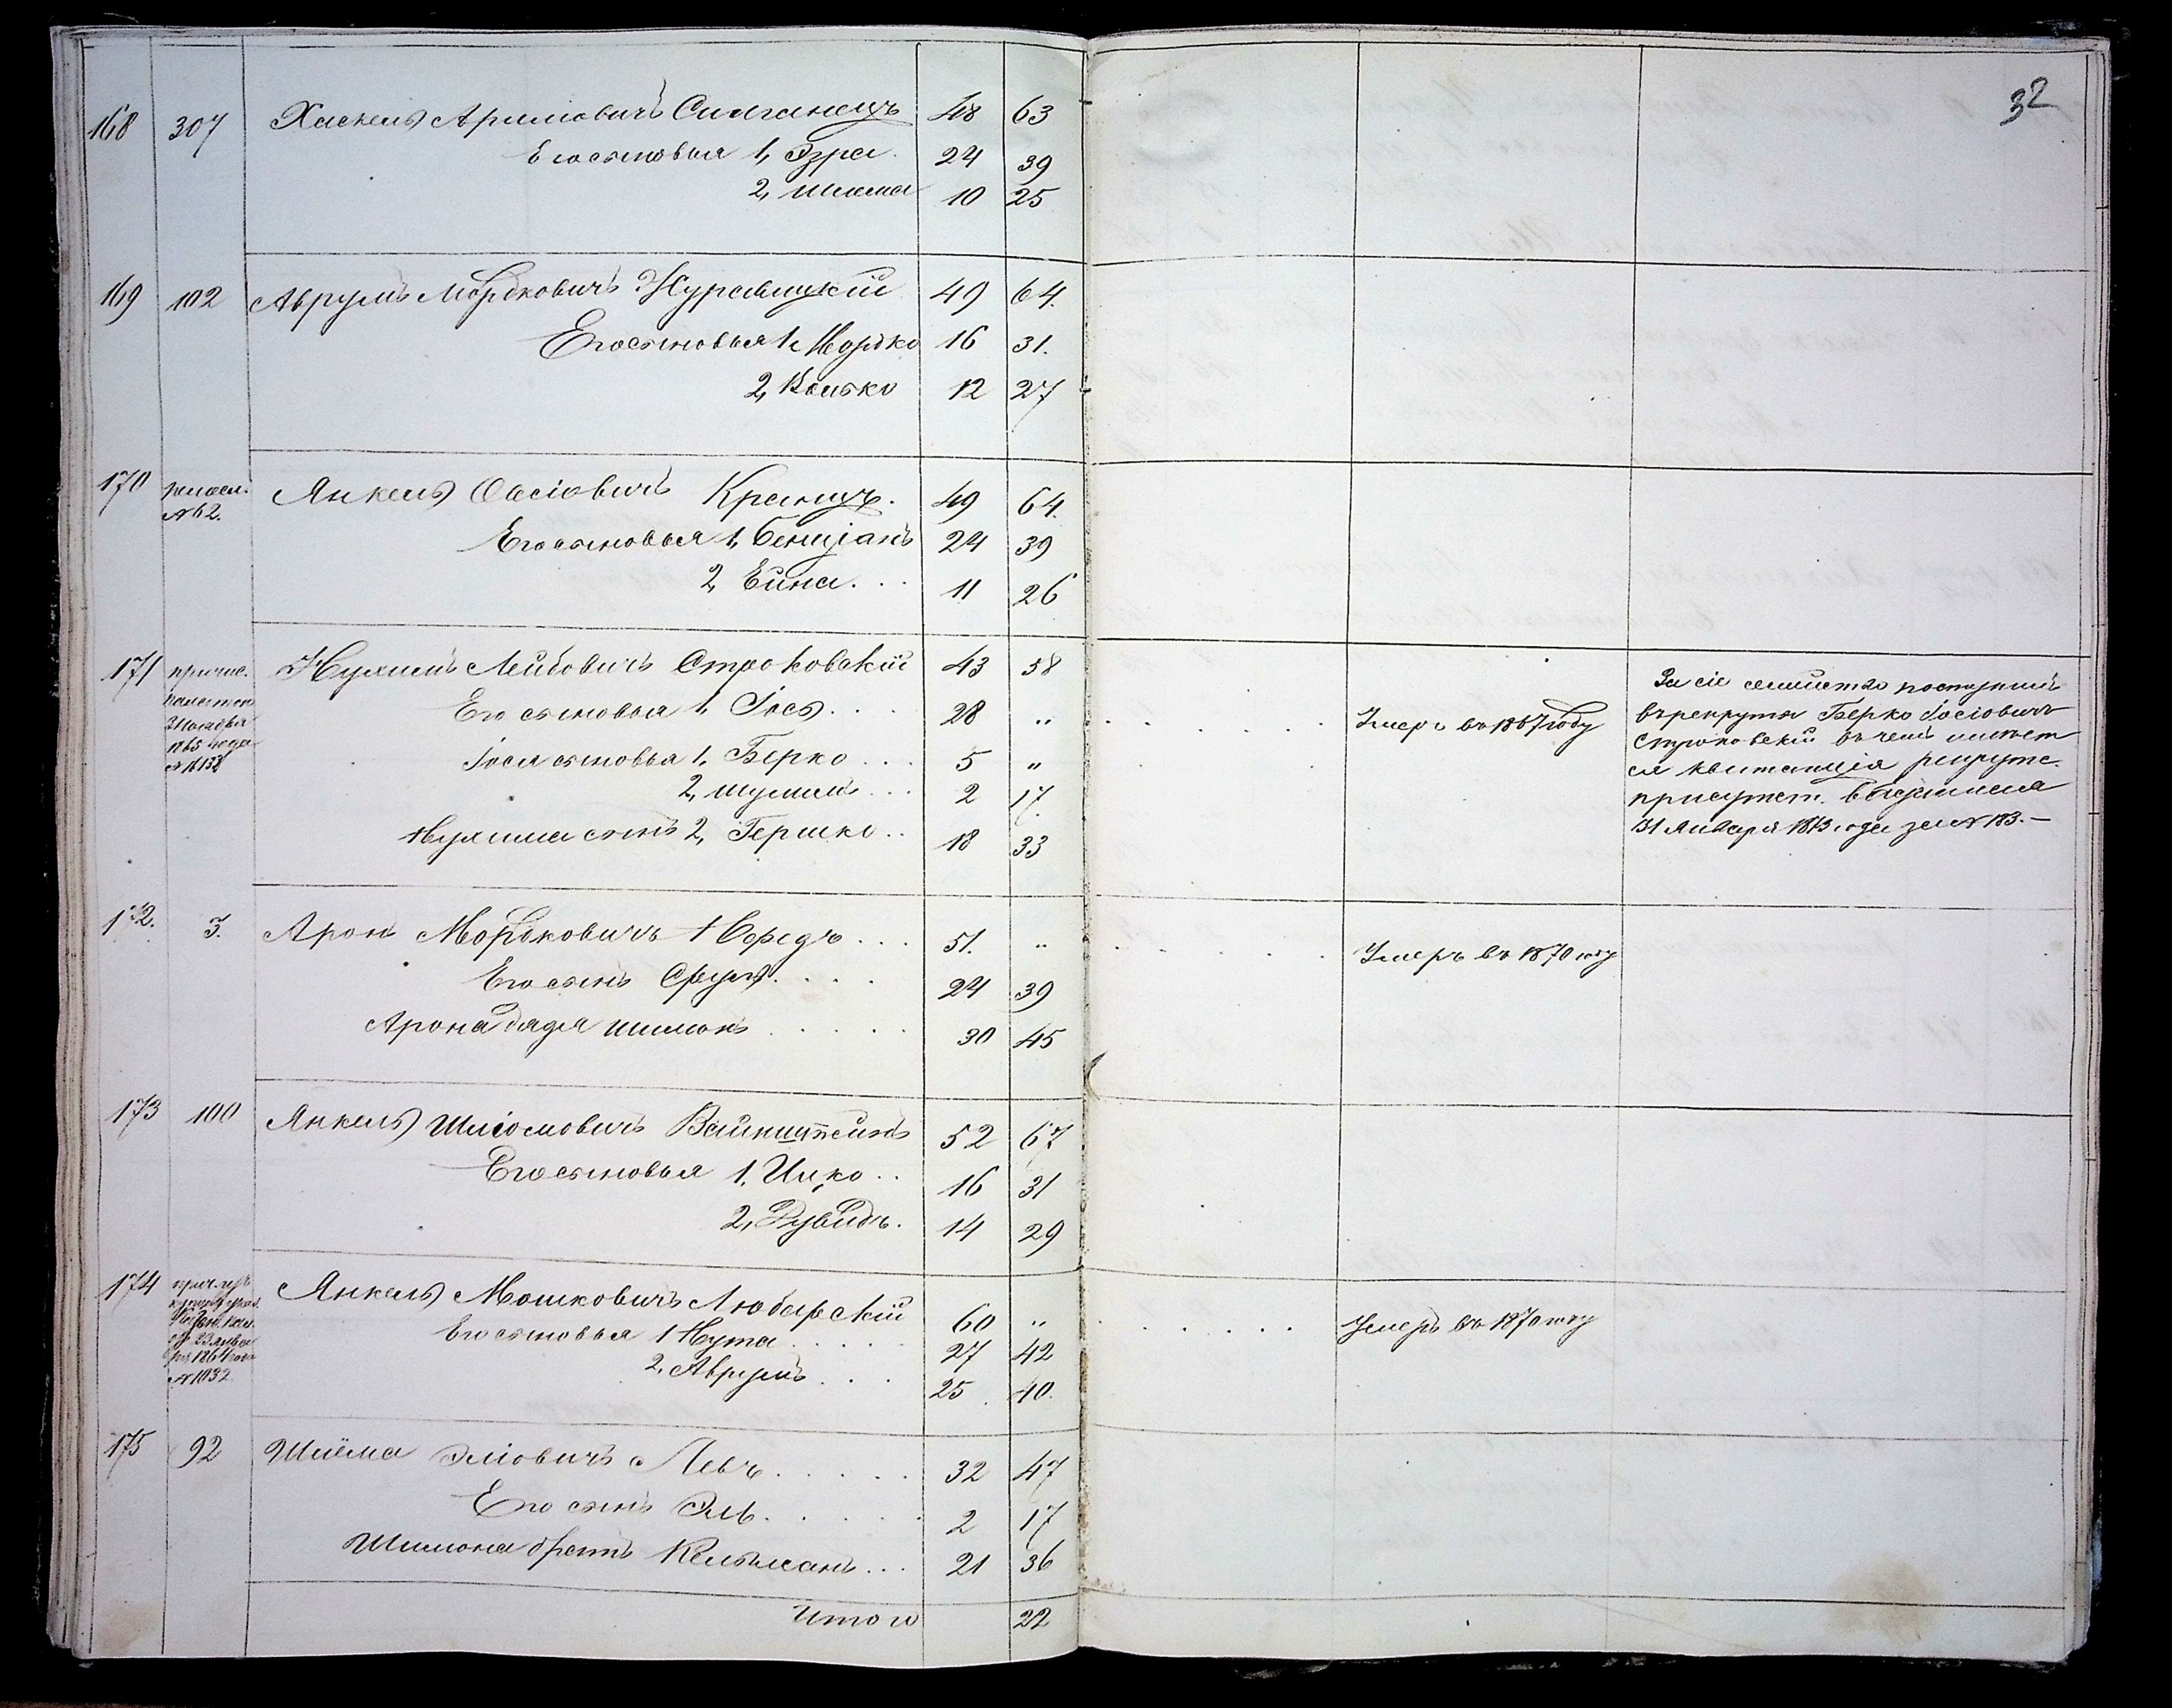 32
168 307 Хаскель Арымовичъ 48 63
Его сыновья 1, Эзра 24 39
2, Шлема 10 25
169 102 Аврумъ Мордковичъ Журавицкій 49 64.
Его сыновья 1, Мордко 16 31.
2, Волько 12 27
170 № 62. Янкель Овсіовичъ Кранцъ. 49 64.
Его сыновья 1, Бенціанъ 24 39
2, Ейна. . . 11 26
171 причис. Нухимъ Лейбовичъ Строковскій 43 58
Его сыновья 1, Іось . . . 28 " . . . . Умеръ въ 1867 году
Іося сыновья 1, Берко . . . 5 "
1865 года
2, Шулимъ . . . 2 17
Нухима сынъ 2, Гершко . . 18 33
За сіе семейство поступилъ
въ рекруты Берко Іосіовичъ
Строковскій въ чемъ имѣет
ся квитанція рекрутс.
присутст. выданная
31 Января 1873 года за № 183. —
172. 3. Аронъ Мордковичъ . . . 51. " . . . . Умеръ въ 1870 году
Его сынъ Сруль. . . . 24 39
Арона дядя Шимонъ . . . . . 30 45
173 100 Янкель Шліомовичъ Вайнштейнъ 52 67
Его сыновья 1, Ицко . . 16 31
2, Дувидъ. 14 29
174 Янкель Мошковичъ Любарскій 60 " . . . . . . Умеръ въ 1870 году
Его сыновья 1 Нута . . . . . 27 42
2, Аврумъ . . . 25 40.
1864 года
№ 1032
175 92 Шлёма Эліовичъ Левъ . . . . . 32 47
Его сынъ Эль. . . . . . 2 17
Шимона братъ Кельманъ . . . 21 36
Итого 22